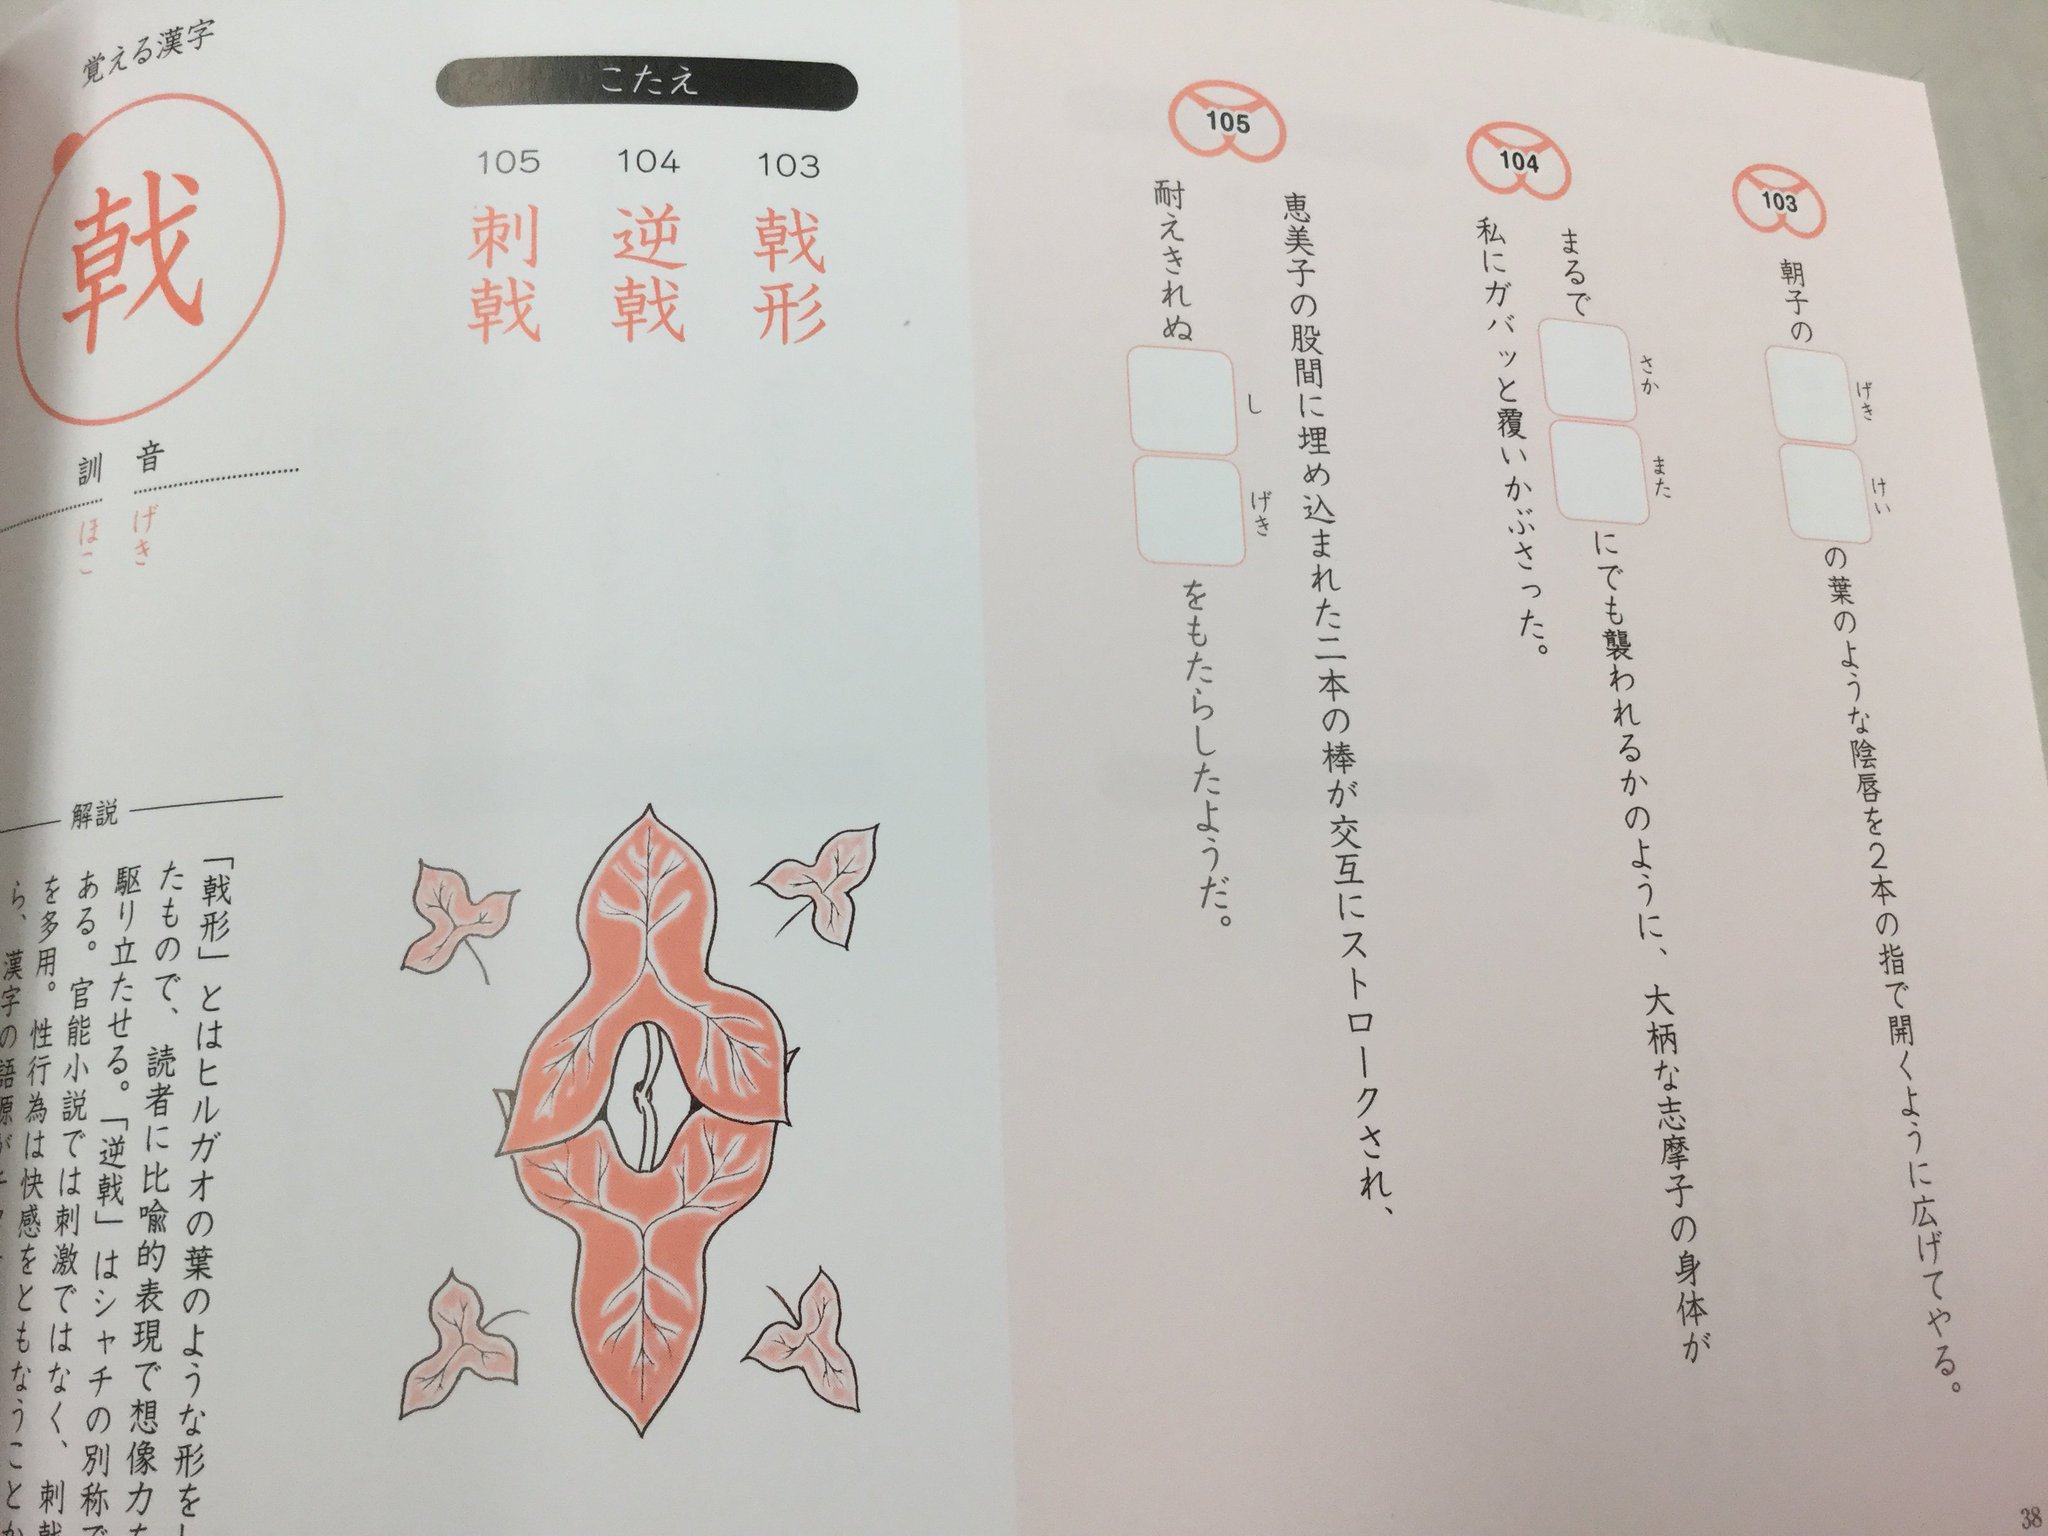 103
朝子の
げき
けい
の葉のような陰唇を2本の指で開くように広げてやる。
104
まるで
さか
また
にでも襲われるかのように、大柄な志摩子の身体が
私にガバッと覆いかぶさった。
105
恵美子の股間に埋め込まれた二本の棒が交互にストロークされ、
耐えきれぬ
し
げき
をもたらしたようだ。
38
こたえ
103
戟形
104
逆戟
105
刺戟
覚える漢字
戟
音
げき
訓
ほこ
解説
「戟形」とはヒルガオの葉のような形をし
たもので、読者に比喩的表現で想像力を
駆り立たせる。「逆戟」はシャチの別称で
ある。官能小説では刺激ではなく、刺戟
を多用。性行為は快感をともなうことか
ら、漢字の語源が